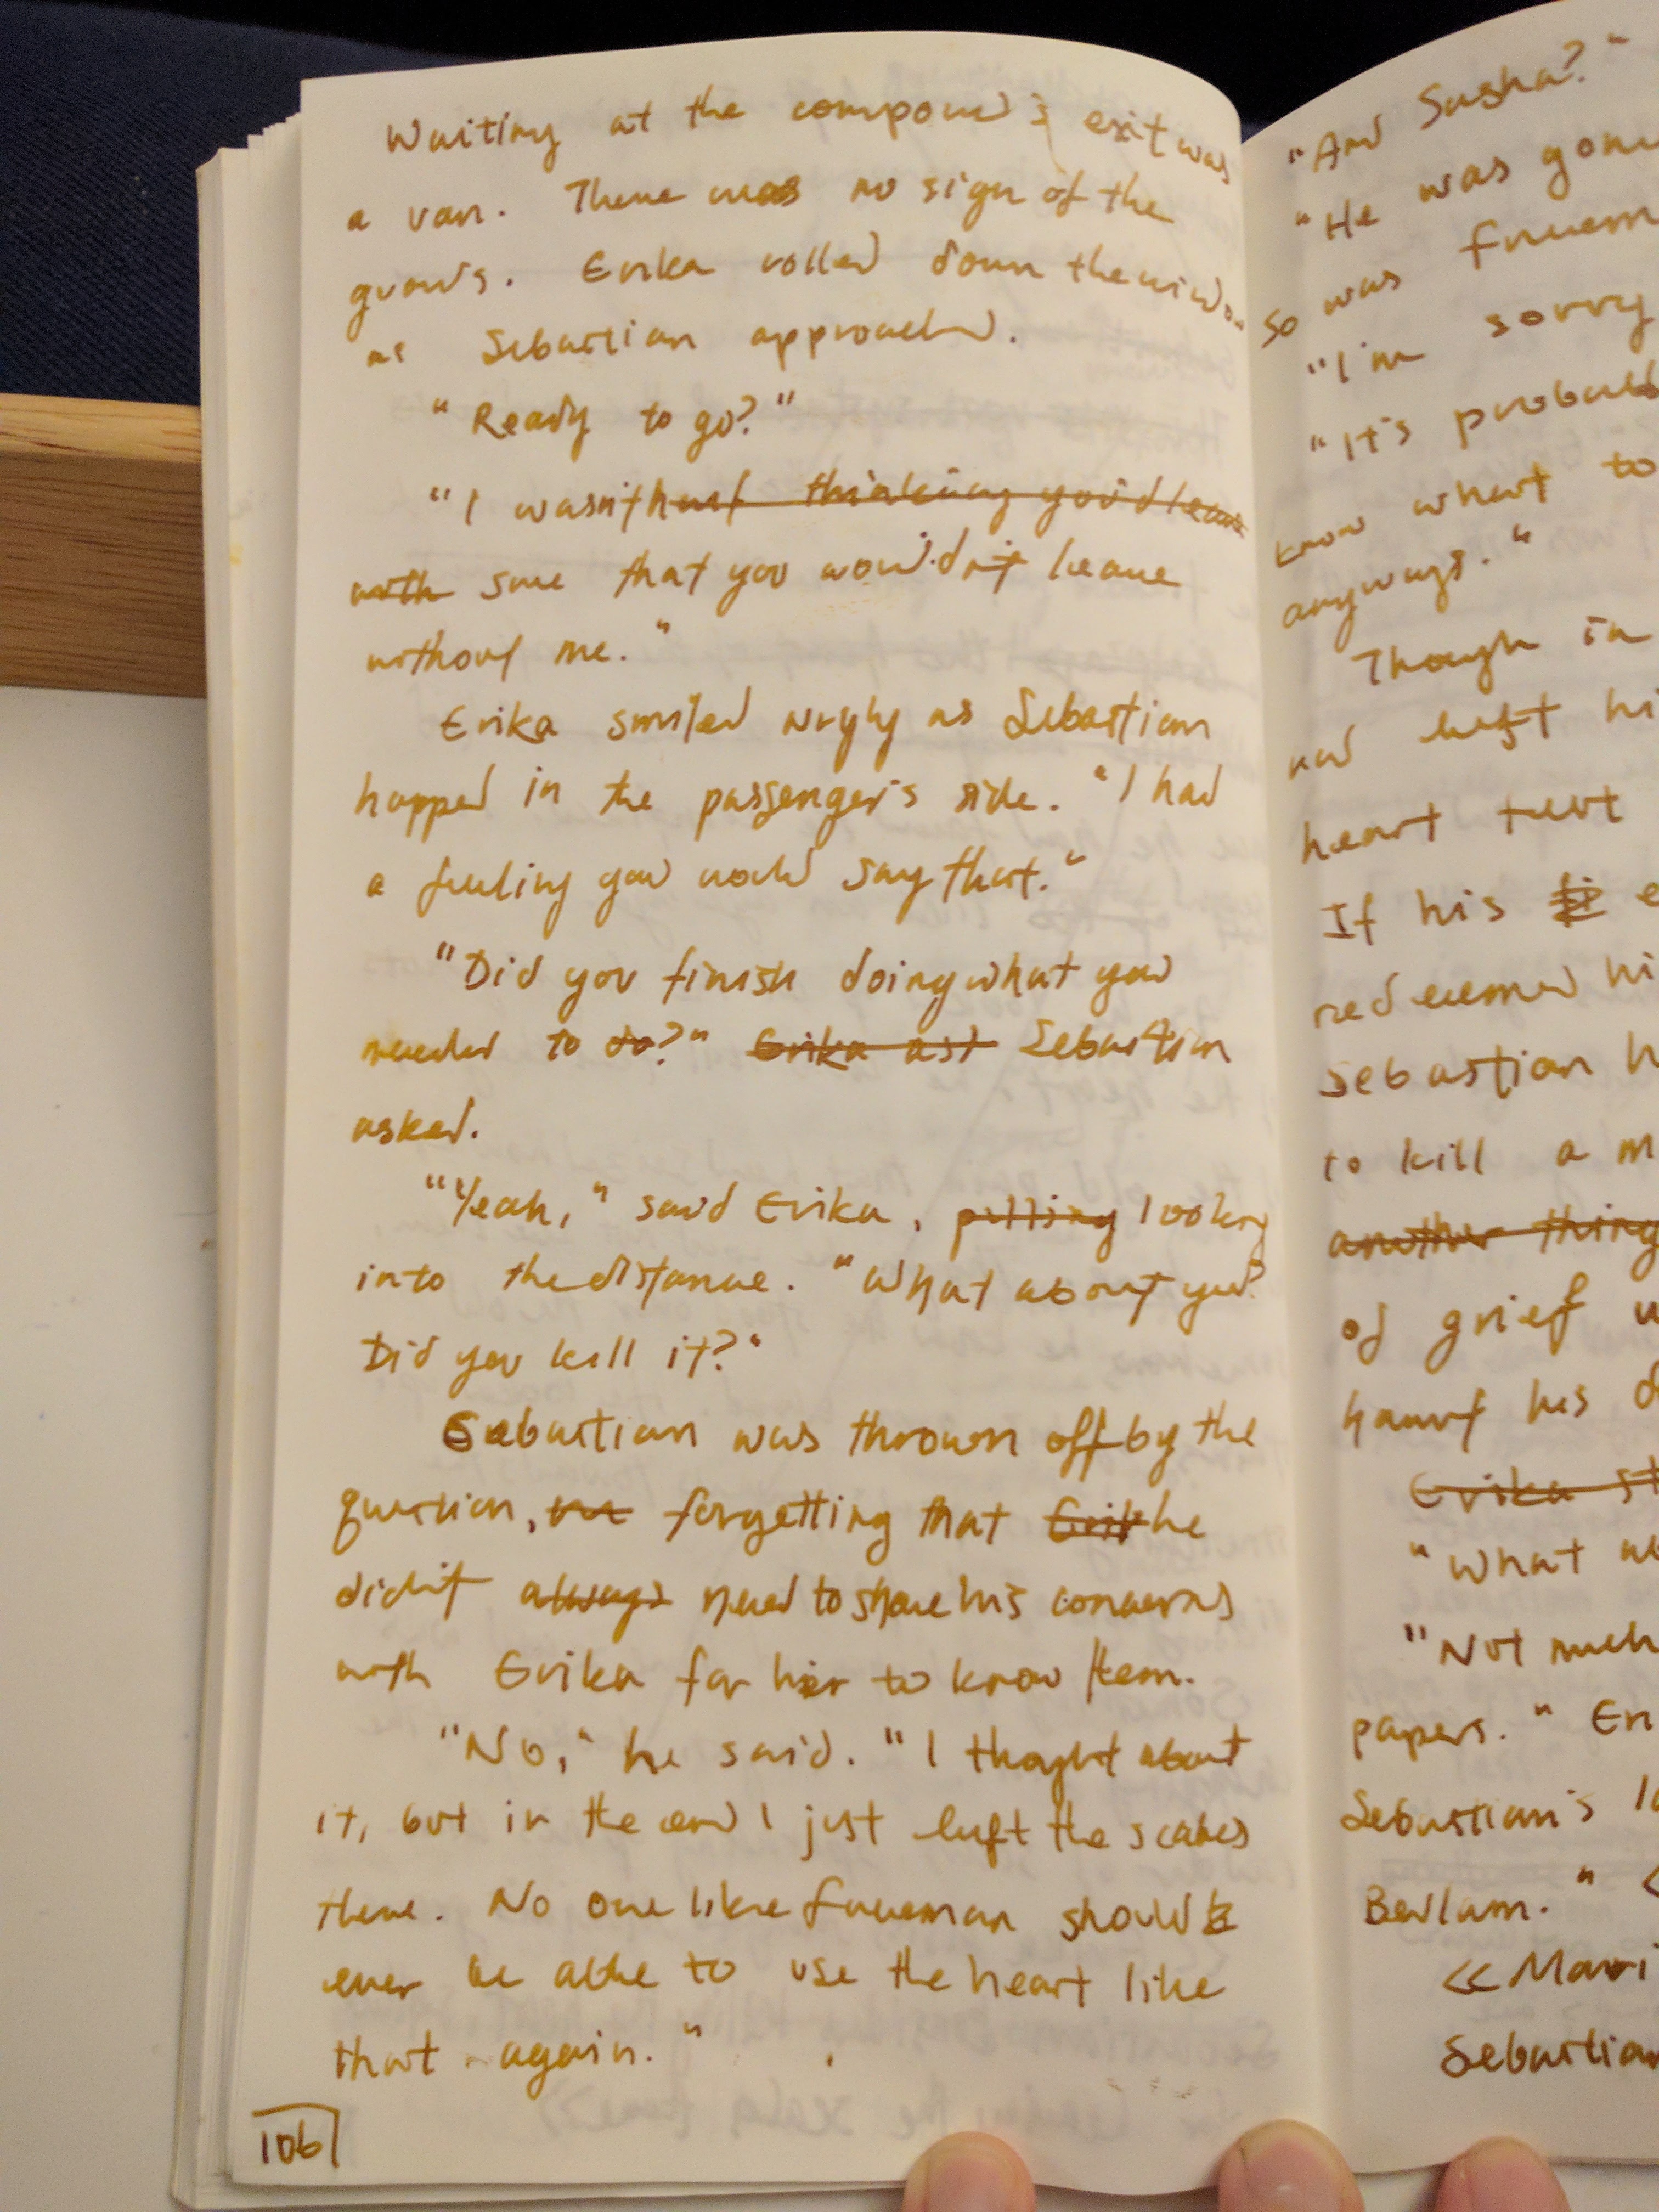 Waiting at the compound's exit was
a van. There was no sign of the
guards. Erika rolled down the window
as Sebastian approached.
"Ready to go?"
"I wasn't thinking you'd leave
with sure that you wouldn't leave
without me."
Erika smiled wryly as Sebastian
hopped in the passenger's side. "I had
a feeling you would say that."
"Did you finish doing what you
needed to do?" Erika ast Sebastian
asked.
"Yeah," said Erika, pulling looking
into the distance. "What about you?
Did you kill it?"
Sebastian was thrown off by the
question, forgetting that Erik he
didn't always need to share his concerns
with Erika for her to know them.
"No," he said. "I thought about
it, but in the end I just left the scales
there. No one like freeman should
ever be able to use the heart like
that again."
106
"And Sasha?"
"He was gone
so was freeman
"I'm sorry
"It's probably
know what to
anyways."
Though in
had left hi
heart that
If his
redeemed hi
Sebastian h
to kill a m
another thing
of grief w
haunt his d
Erika st
"What ab
"Not much
papers." Eri
Sebastian's la
Bedlam." <
<<Mari
Sebastian